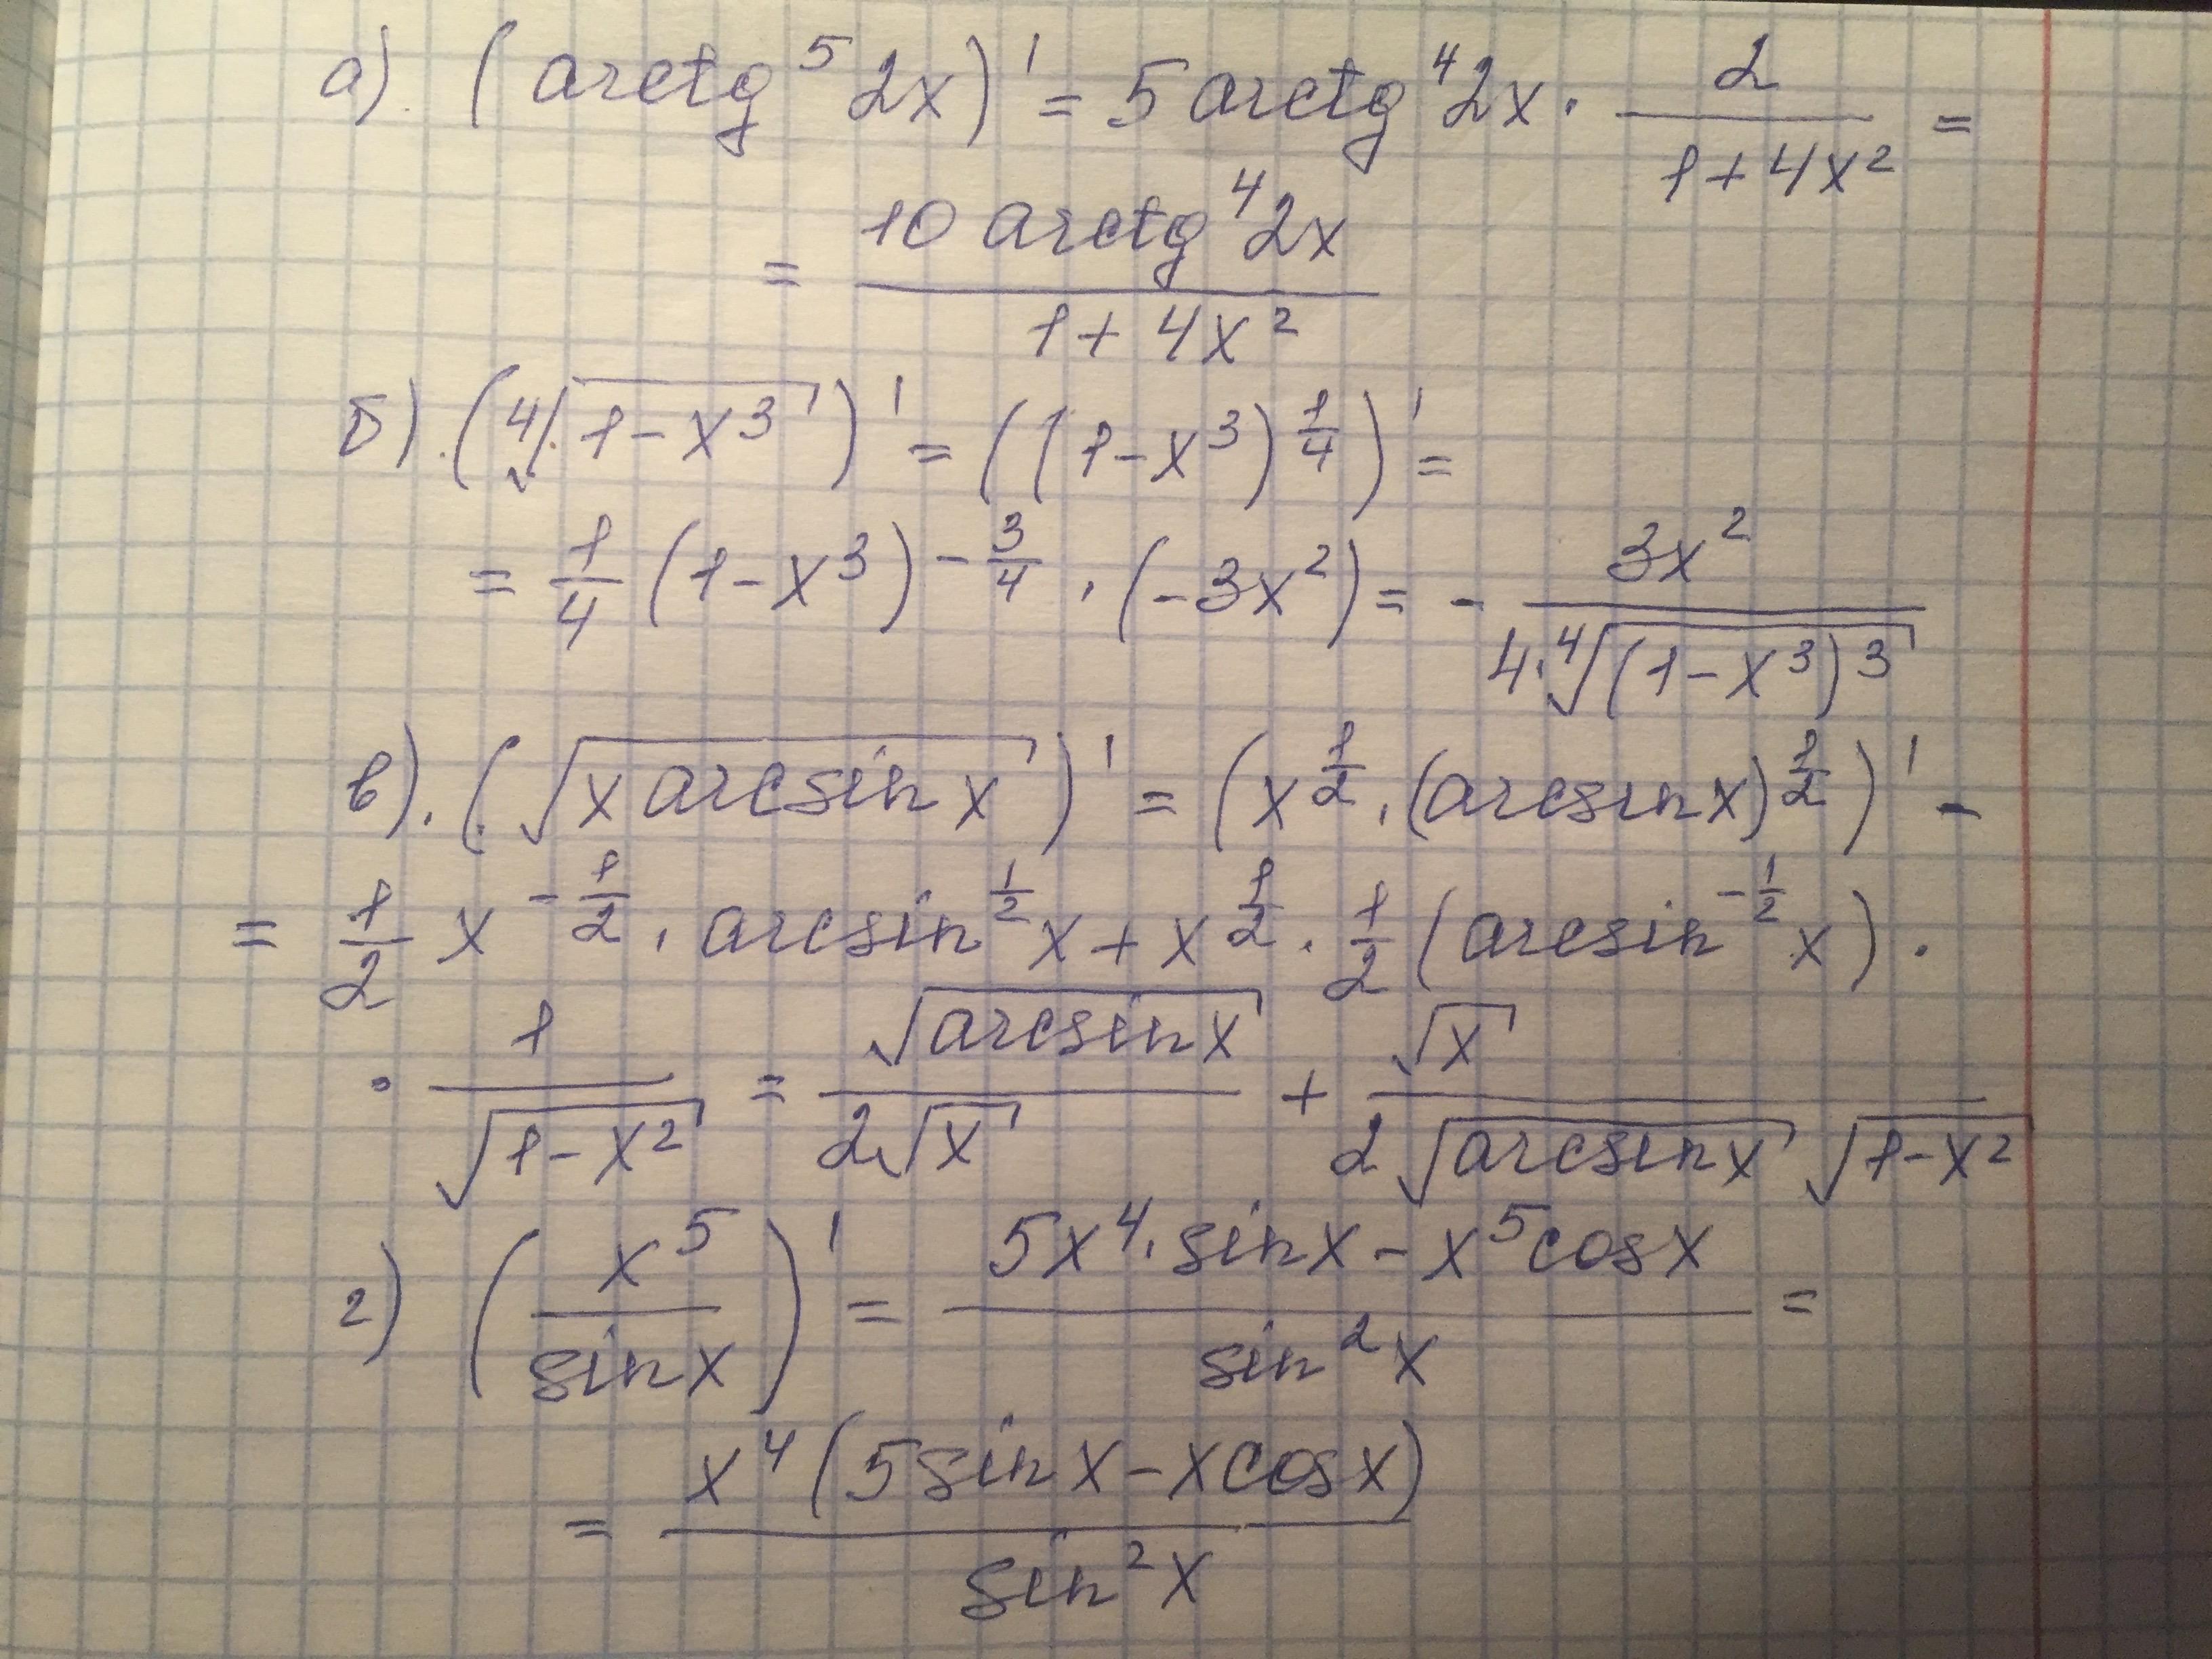 а). (arctg⁵ 2x)' = 5 arctg⁴ 2x · \frac{2}{1+4x²} =
= \frac{10 arctg⁴ 2x}{1+4x²}
б). (\sqrt[4]{1-x³})' = ((1-x³)^{\frac{1}{4}})' =
= \frac{1}{4} (1-x³)^{-\frac{3}{4}} · (-3x²) = - \frac{3x²}{4·\sqrt[4]{(1-x³)³}}
в). (\sqrt{x arcsin x})' = (x^{\frac{1}{2}} · (arcsin x)^{\frac{1}{2}})' -
= \frac{1}{2} x^{-\frac{1}{2}} · arcsin^{\frac{1}{2}} x + x^{\frac{1}{2}} · \frac{1}{2} (arcsin^{-\frac{1}{2}} x) ·
· \frac{1}{\sqrt{1-x²}} = \frac{\sqrt{arcsin x}}{2\sqrt{x}} + \frac{\sqrt{x}}{2\sqrt{arcsin x} \sqrt{1-x²}}
г) (\frac{x⁵}{sin x})' = \frac{5x⁴ · sin x - x⁵ cos x}{sin² x} =
= \frac{x⁴ (5 sin x - x cos x)}{sin² x}